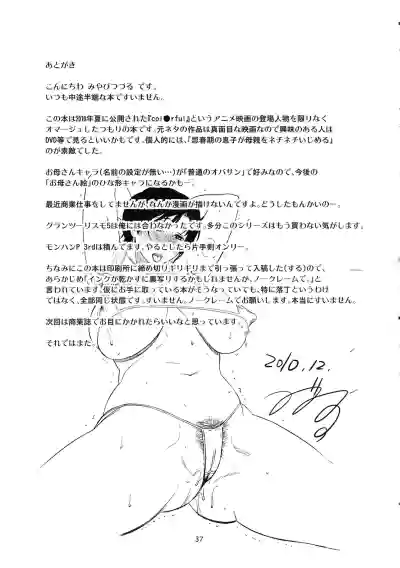 あとがき
こんにちわ みやびつづる です。
いつも中途半端な本ですいません。
この本は2010年夏に公開された『col●rful』というアニメ映画の登場人物を限りなく
オマージュしたつもりの本です。元ネタの作品は真面目な映画なので興味のある人は
DVD等で見るといいかもです。個人的には、『思春期の息子が母親をネチネチいじめる』
のが素敵でした。
お母さんキャラ(名前の設定が無い…)が「普通のオバサン」で好みなので、今後の
「お母さん絵」のひな形キャラになるかも…。
最近商業仕事をしてませんが、なんか漫画が描けないんですよね。どうしたもんかいのー。
グランツーリスモ5は俺には合わなかったです。多分このシリーズはもう買わない気がします。
モンハンP 3rdは積んでます。やるとしたら片手剣オンリー。
ちなみにこの本は印刷所に締め切りギリギリまで引っ張って入稿した(する)ので、
あらかじめ「インクが乾かずに裏写りするかもしれませんが、ノークレームで。」と
言われています。仮にお手に取っている本がそうなっていても、特に落丁というわけ
ではなく、全部同じ状態です。すいません。ノークレームでお願いします。本当にすいません。
次回は商業誌でお目にかかれたらいいなと思っています。
それではまた。
2010.12.
37